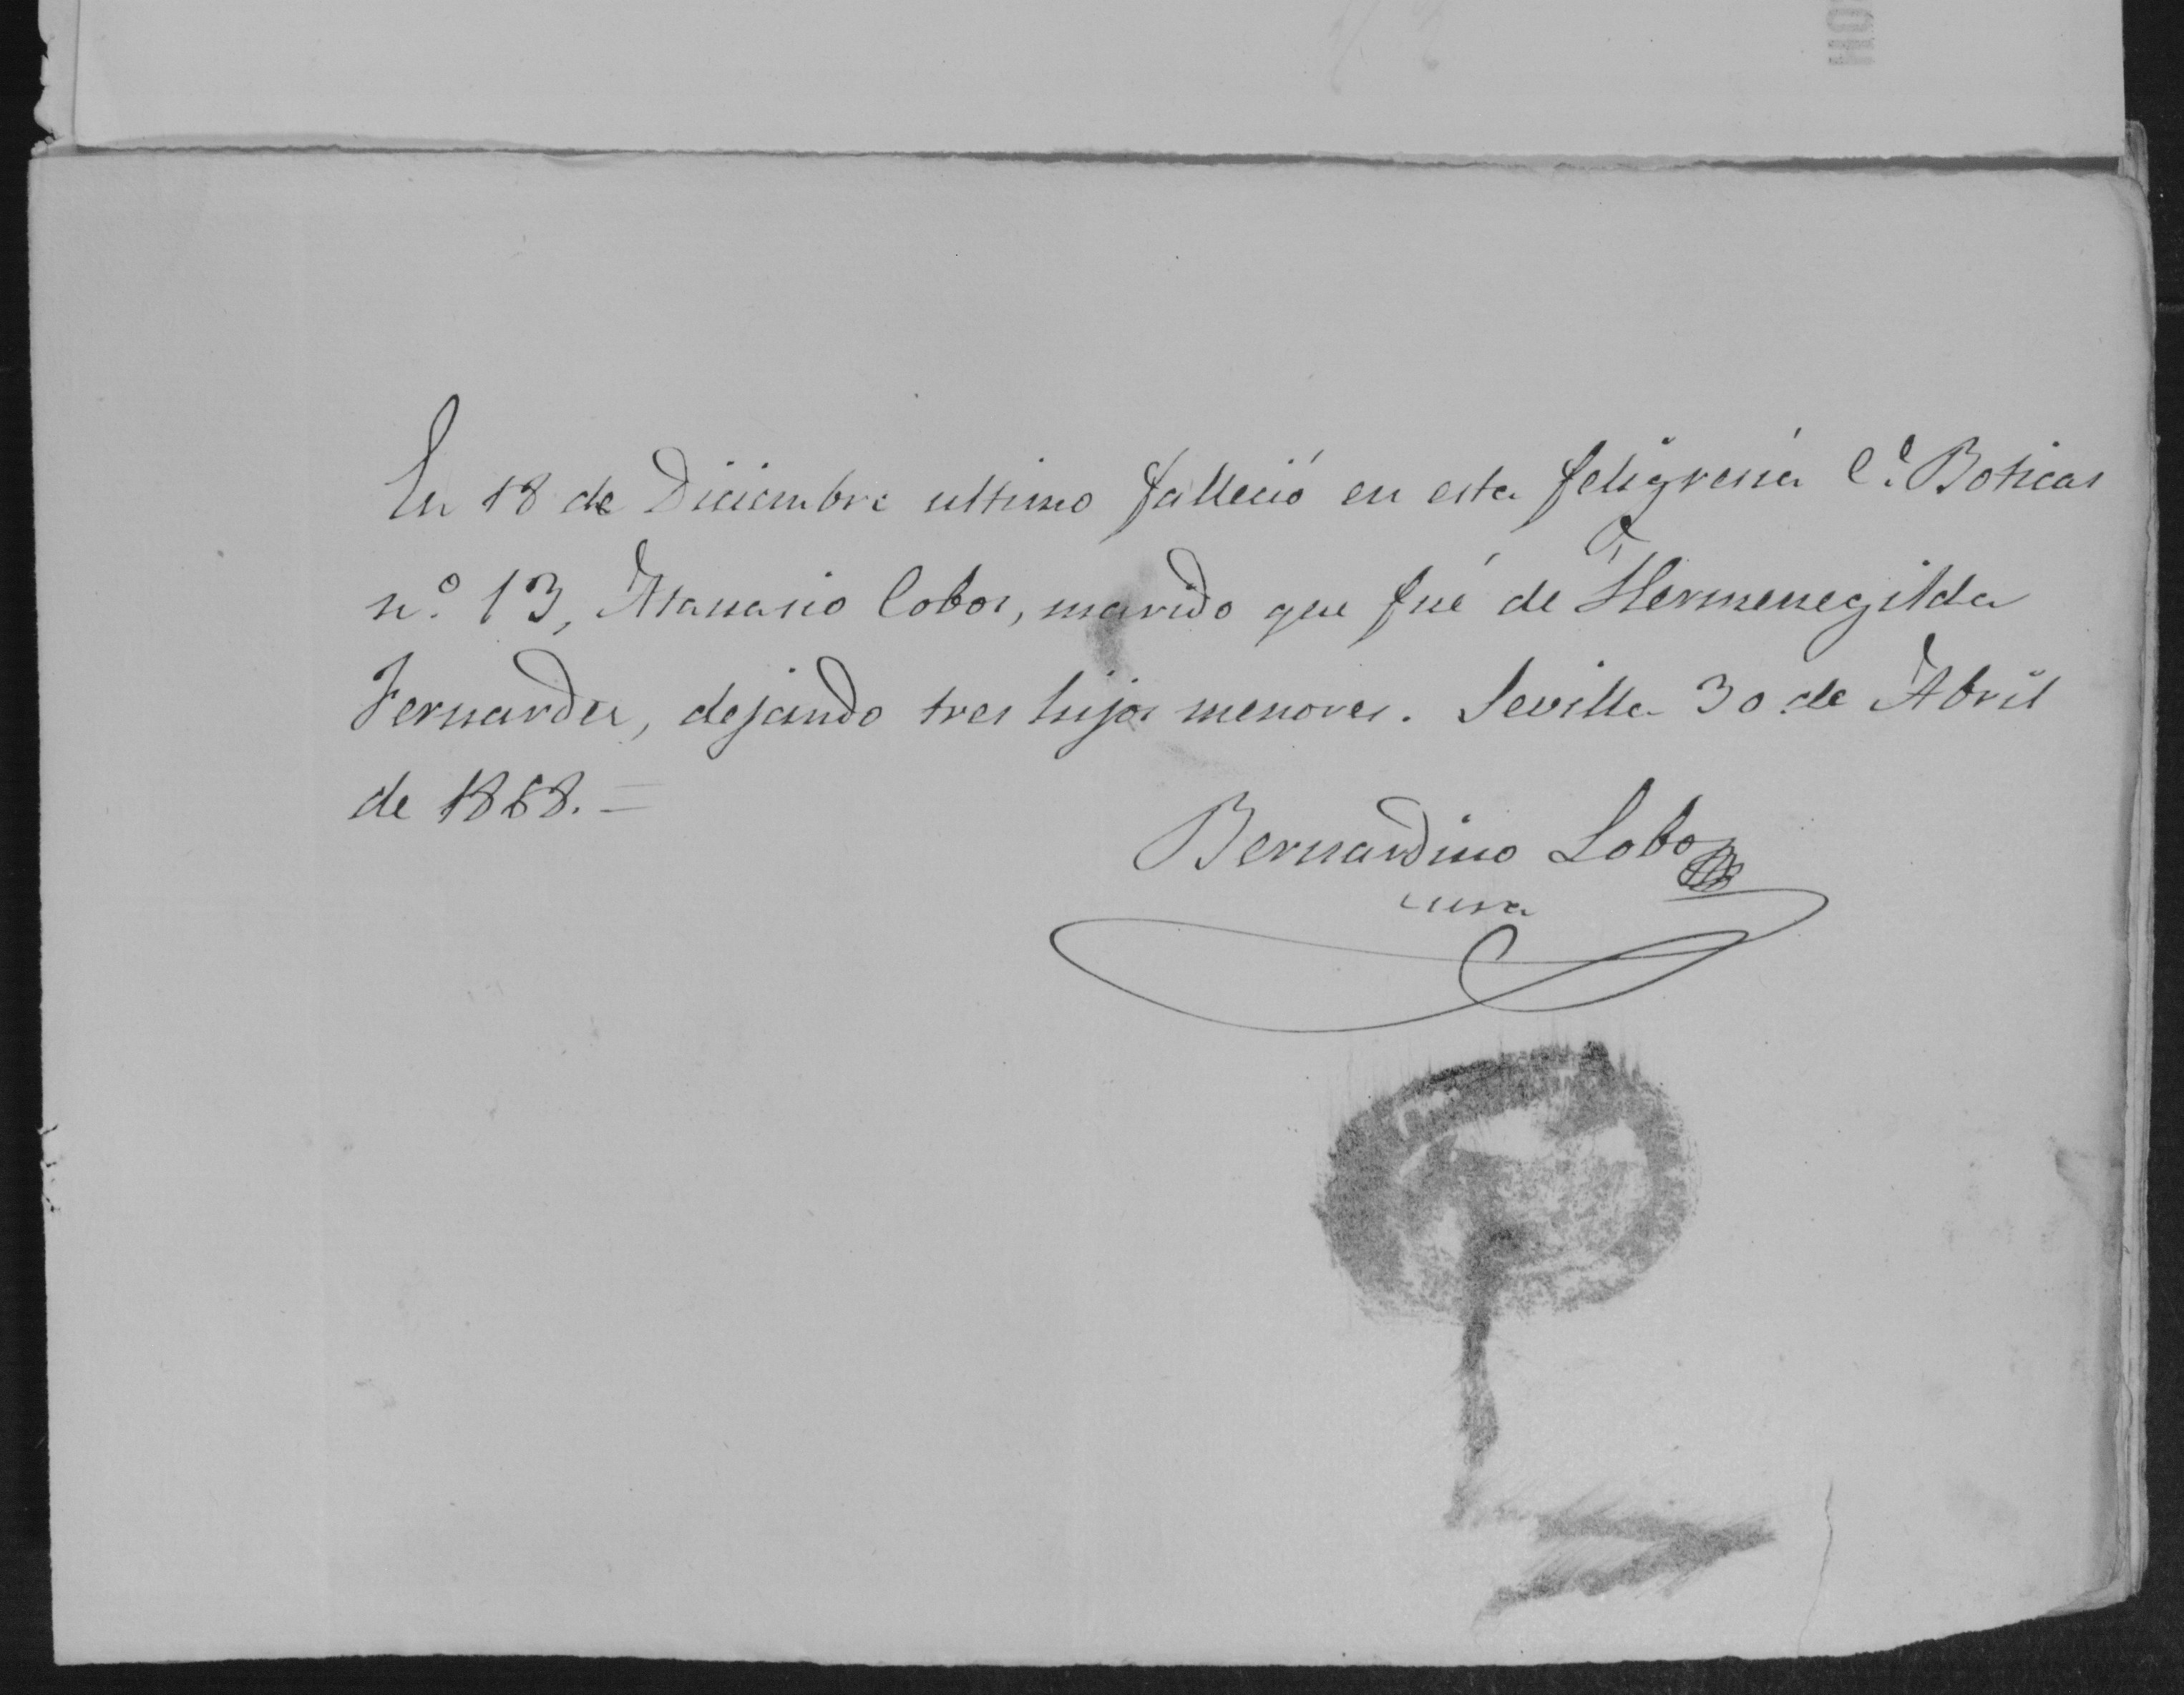 HO
En 18 de Diciembre ultimo falleció en esta feligresía C.e Boticas
n.º 13, Atanasio Cobos, marido que fué de Hermenegilda
Fernandez, dejando tres hijos menores. Sevilla 30 de Abril
de 1868. =
Bernardino Lobo
cura